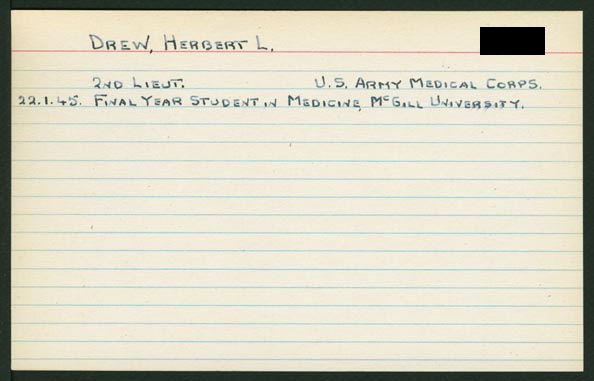 DREW, HERBERT L.
2ND LIEUT. U.S. ARMY MEDICAL CORPS.
22.1.45. FINAL YEAR STUDENT IN MEDICINE, McGILL UNIVERSITY.